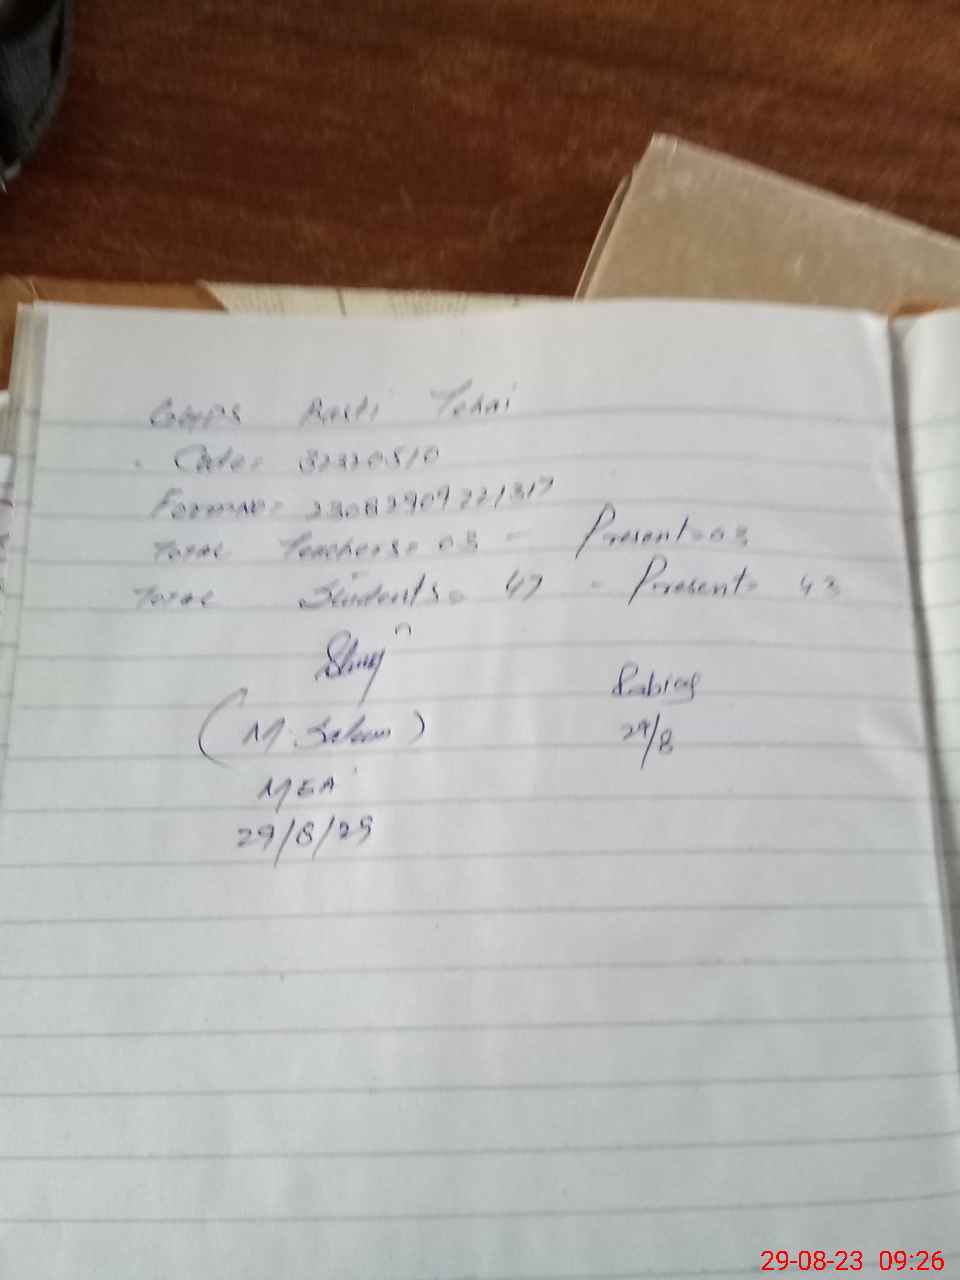 GGPS Basti Tohai
Code= 32320510
Form no= 23082909221317
Total Teachers= 03 - Present=03
Total Students= 47 - Present= 43
(M. Saleem)
Rabia
29/8
MEA
29/8/23
29-08-23 09:26